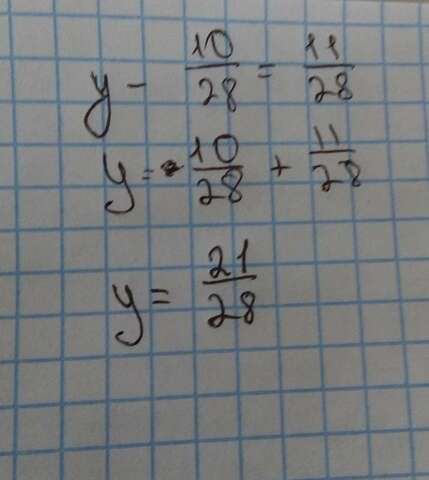 y - 10/28 = 11/28
y = 10/28 + 11/28
y = 21/28